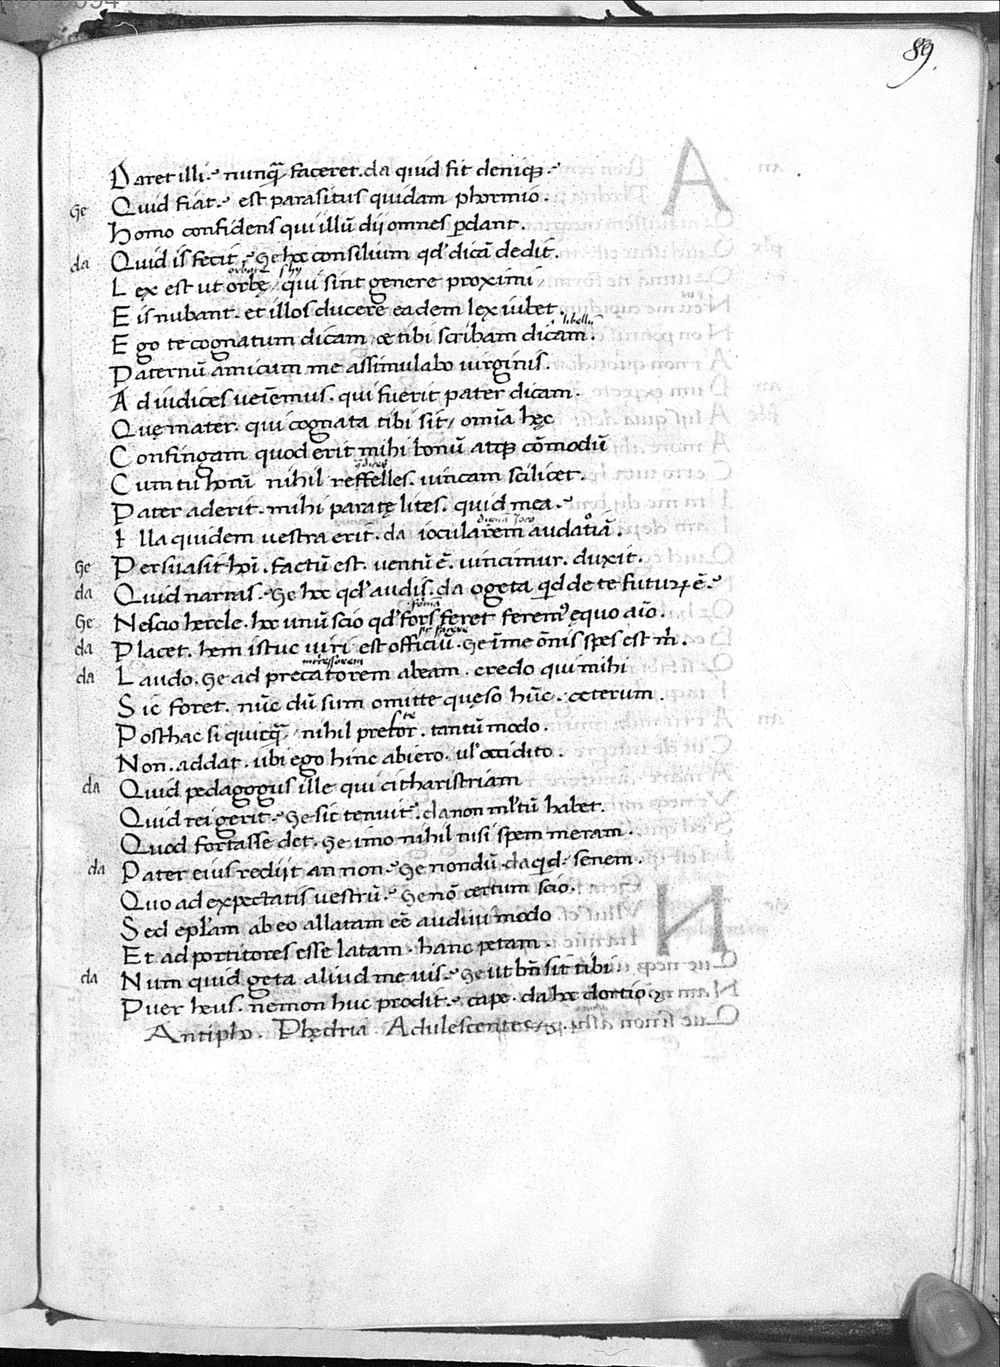 89.
Daret illi. nunq̃ faceret. da quid fit deniqꝫ.
Ge Quid fiat. est parasitus quidam phormio.
Homo confidens qui illũ dij omnes ꝑdant.
da Quid is fecit. Ge hoc consilium qd' dicã dedit.
Lex est ut orbę / qui sint genere proximi
Eis nubant. et illos ducere eadem lex iubet.
libellũ
Ego te cognatum dicam et tibi scribam dicam.
Paternũ amicum me assimulabo uirginis.
Ad iudices ueiẽmus. qui fuerit pater dicam.
Quę mater. qui cognata tibi sit / omĩa hęc
Confingam quod erit mihi bonũ atqꝫ cõmodũ
Cum tu honũ nihil reffelles. uincam scilicet.
Pater aderit. mihi paratę lites. quid mea.
Illa quidem uestra erit. da iocularem audatiã.
Ge Persuasit hoĩ. factũ est. uentũ ẽ. uincimur. duxit.
da Quid narras. Ge hoc qd' audis. da o geta qd de te futurꝝ ẽ.
Ge Nescio hercle. hoc unũ scio qd' fors feret feremꝰ ęquo aĩo.
da Placet. hem istuc uiri est officiũ. Ge ĩ me õnis spes est m̃.
da Laudo. Ge ad precatorem abeam. credo qui mihi
Sic foret. nũc dũ sum omitte quęso hũc. ceterum
Posthac si quicq̃ / nihil precor. tantũ modo.
Non. addat. ubi ego hinc abiero. ul' occidito.
da Quid pedagogus ille qui citharistriam
Quid rei gerit. Ge sic tenuit. da non ml'tũ habet.
Quod fortasse det. Ge imo nihil nisi spem meram.
da Pater eius redijt an non. Ge nondũ. da qd. senem.
Quo ad expectatis uestrũ. Ge nõ certum scio.
Sed epl'am ab eo allatam eẽ audiui modo
Et ad portitores esse latam. hanc petam.
da Num quid geta aliud me uis. Ge ut bñ sit tibi
Puer heus. nemon huc prodit. cape. da hoc dortio.
Antipho. Phędria Adulescentes